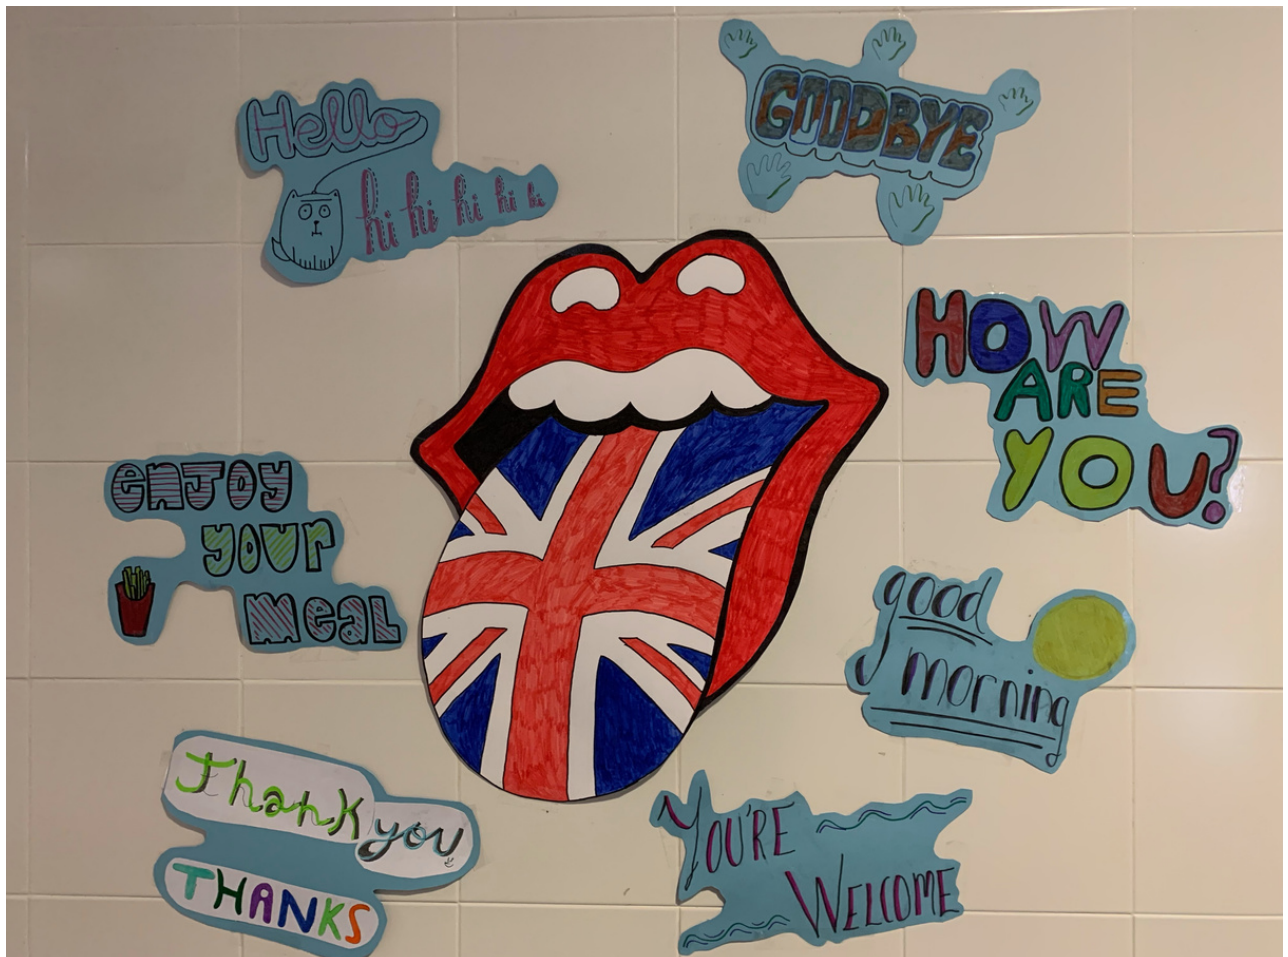 Hello
hi hi hi hi hi
GOODBYE
HOW
ARE
YOU?
enjoy
your
meal
good
morning
Thank you
THANKS
YOU'RE
WELCOME